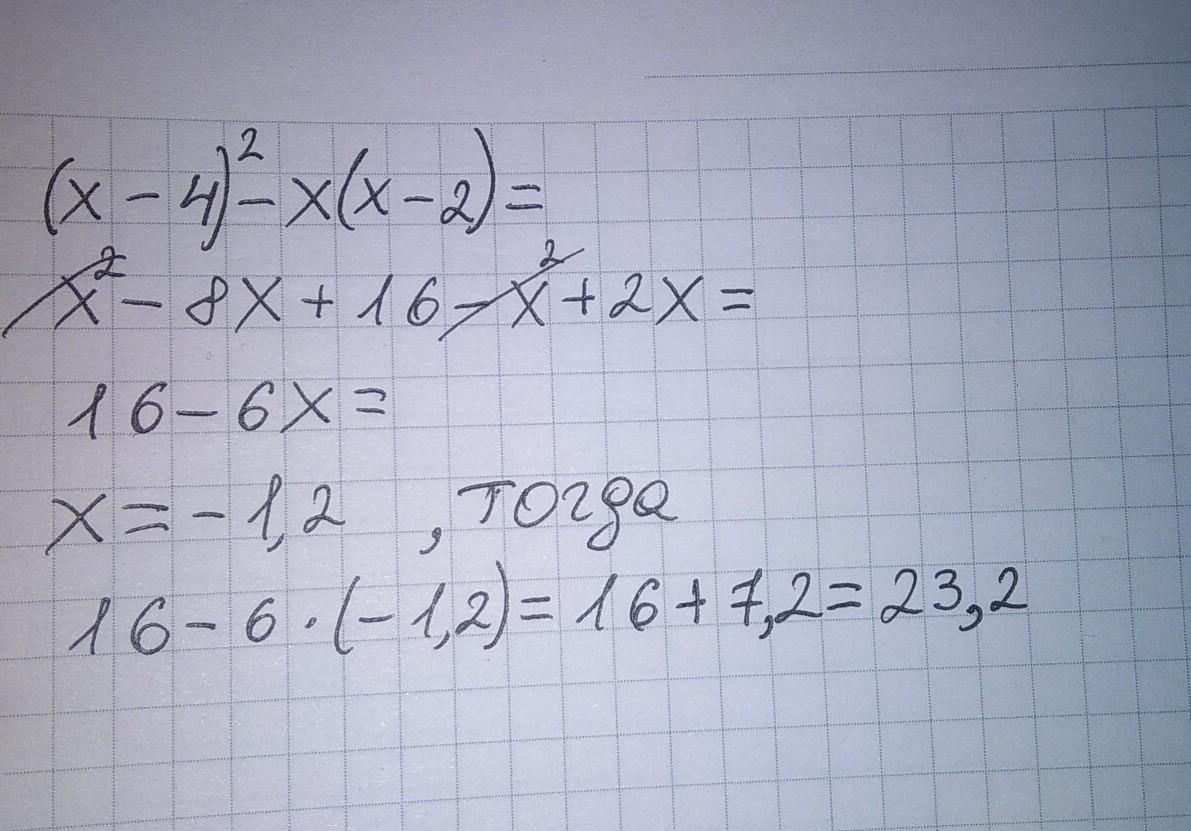 (x - 4)² - x(x - 2) =
x² - 8x + 16 - x² + 2x =
16 - 6x =
x = -1,2 , тогда
16 - 6 · (-1,2) = 16 + 7,2 = 23,2